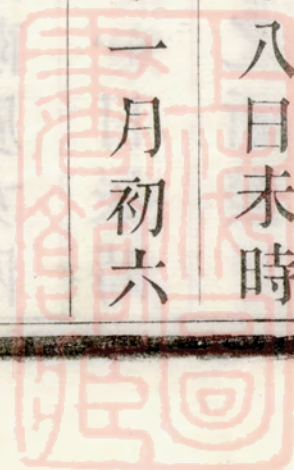 八日未時
一月初六